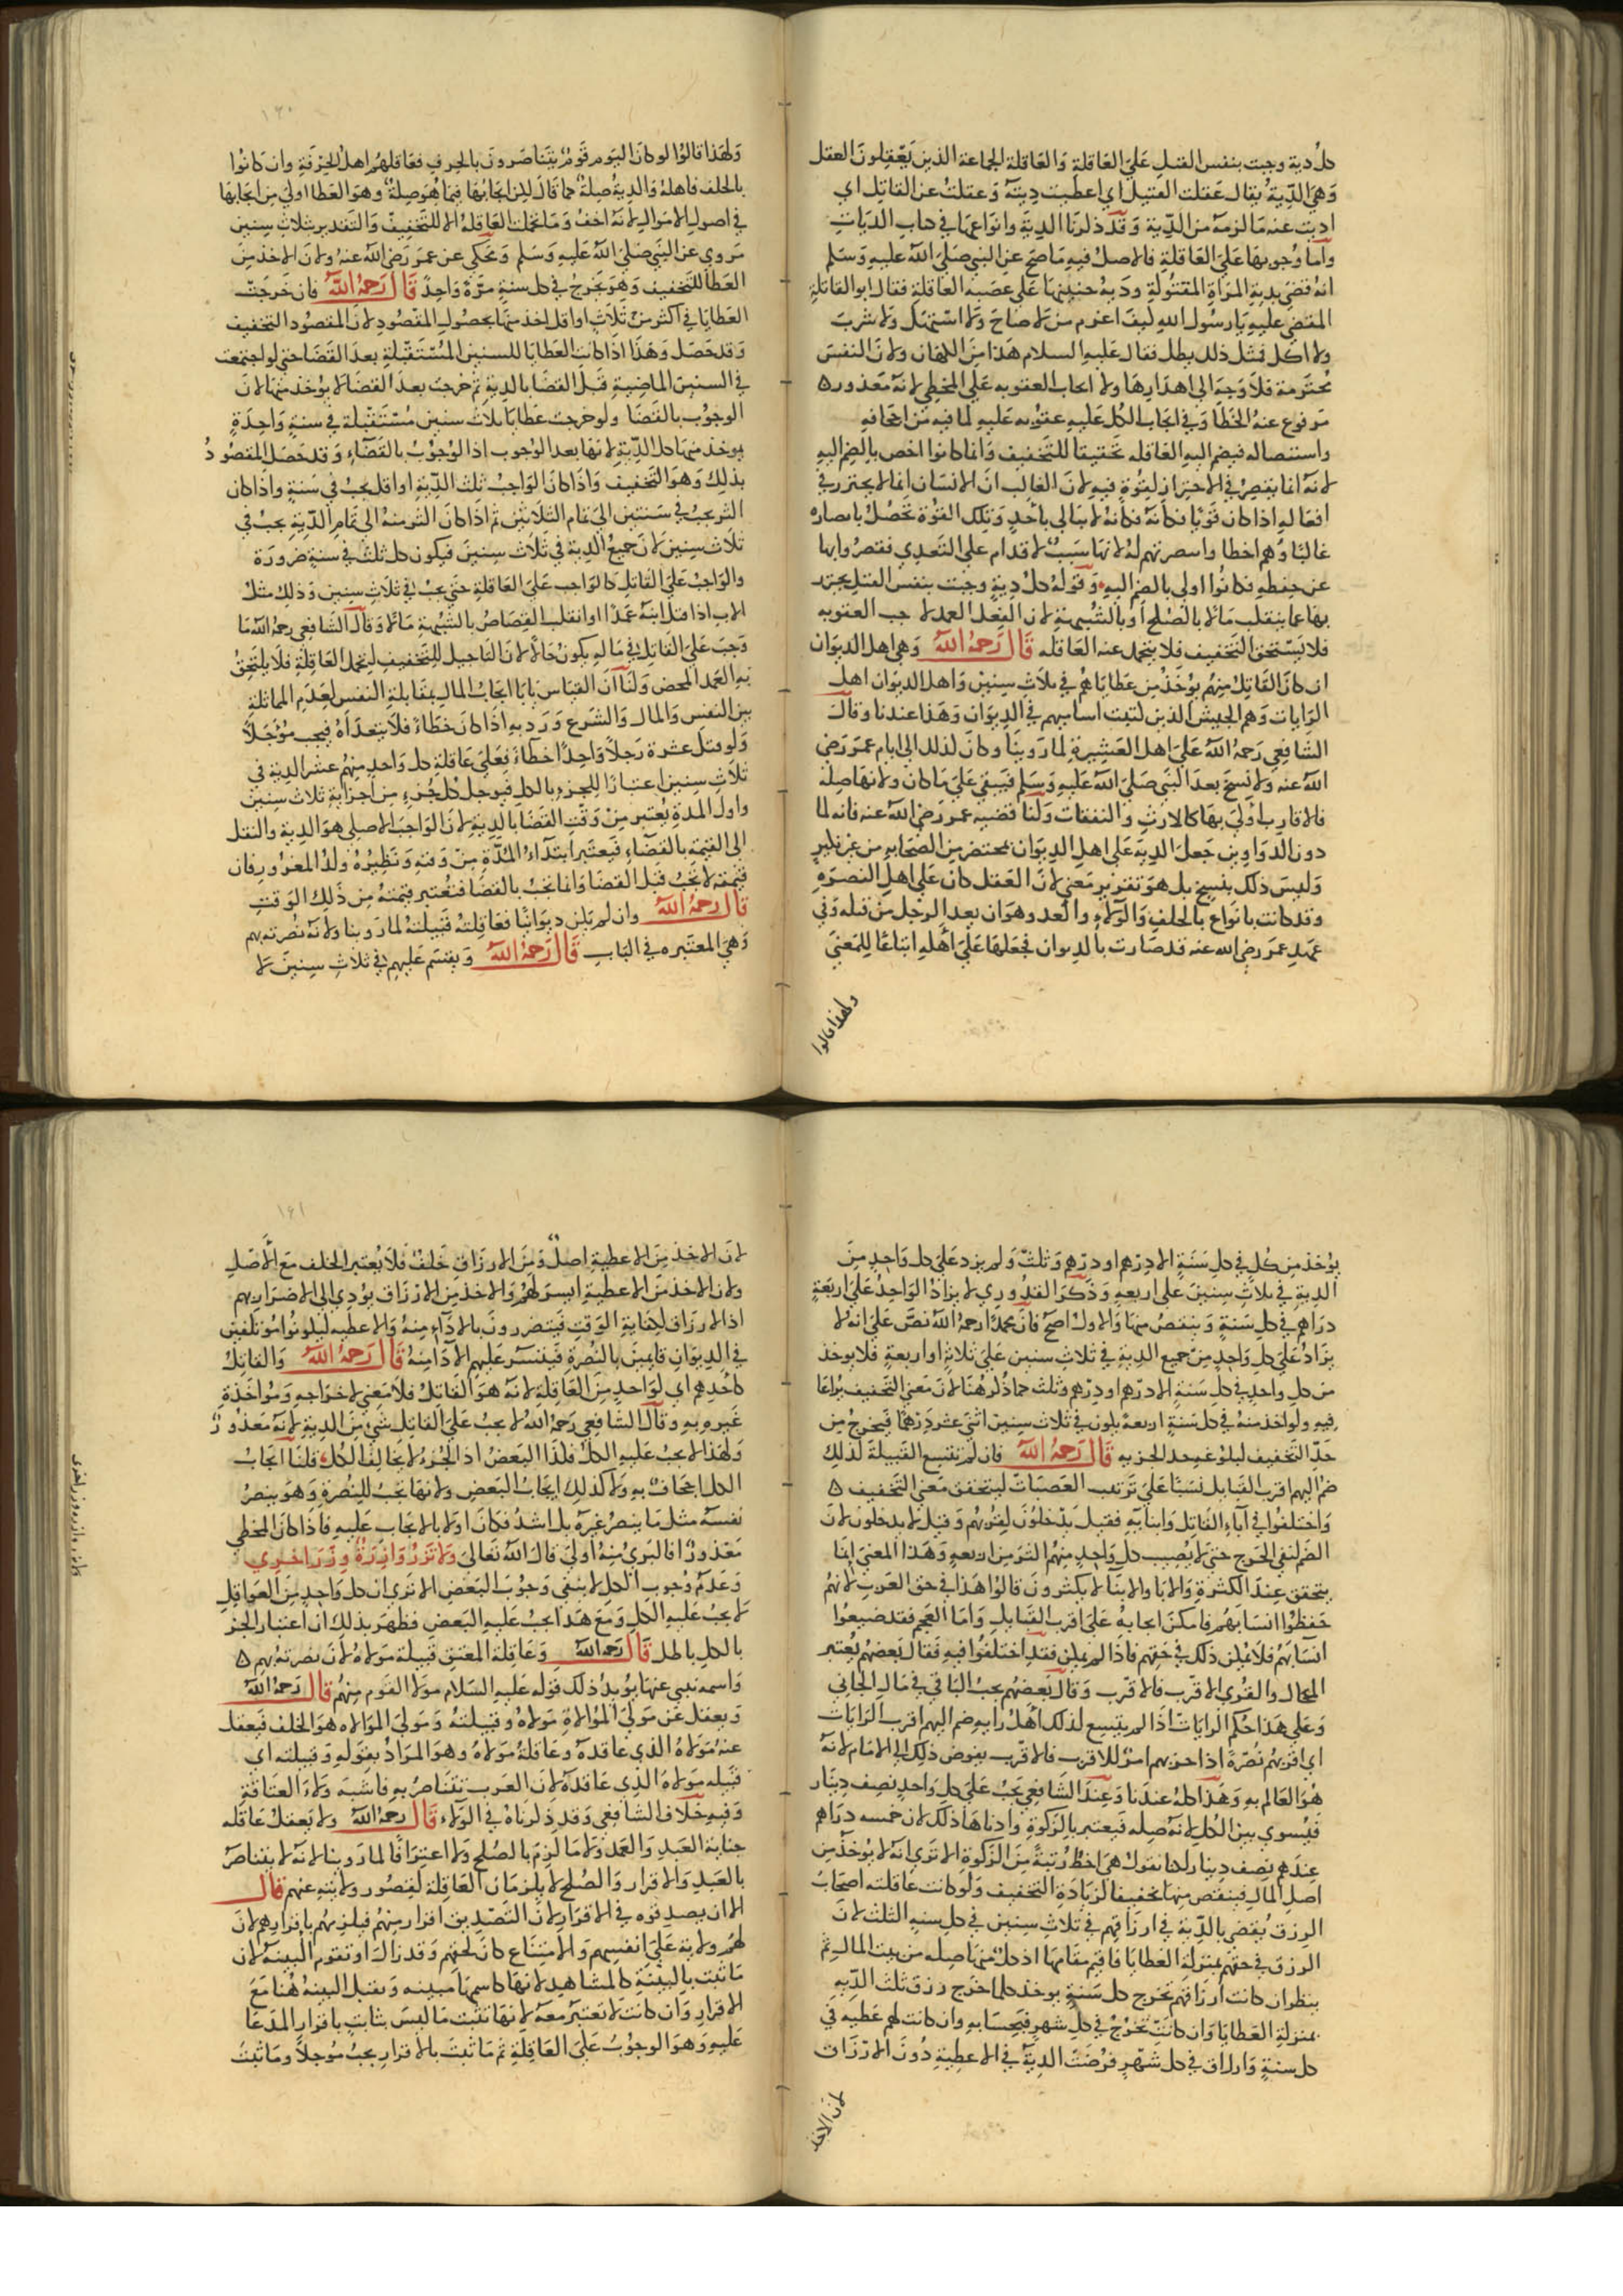 كل دية وجبت بنفس القتل على العاقلة والعاقلة الجماعة الذين يعقلون العقل
وهي الدية يقال عقلت القتيل اي اعطيت ديته وعقلت عن القاتل اي
اديت عنه ما لزمه من الدية وقد ذكرنا الدية وانواعها في كتاب الديات
واما وجوبها على العاقلة فالاصل فيه ما صح عن النبي صلى الله عليه وسلم
انه قضى بدية المراة المقتولة ودية جنينها على عصبه العاقلة فقال ابو القاتلة
المقضى عليه يا رسول الله كيف اغرم من لا صاح ولا استهل ولا شرب
ولا اكل فمثل ذلك يطل فقال عليه السلام هذا من الكهان ولان النفس
محترمة فلا وجه الى اهدارها ولا ايجاب العقوبه على المخطي لانه معذور
مرفوع عنه الخطا وفي ايجاب الكل عليه عقوبه عليه لما فيه من احجافه
واستئصاله فيضم اليه العاقله تحقيقا للتخفيف وانما كانوا اخص بالضم اليه
لانه انما يقصر في الاحتراز لقوة فيه لان الغالب ان الانسان انما لا يحترز في
افعاله اذا كان قويا فكانه فكانه لا يبالي باحد وتلك القوة تحصل بانصاره
غالبا وهم اخطا وا بنصرتهم له لانها سبب لاقدام على التعدي فقصروا بها
عن حفظه فكانوا اولى بالضم اليه وقوله كل دية وجبت بنفس القتل يحترز
بها عما ينقلب مالا بالصلح او بالشبهة لان الفعل العمد لا جب العقوبه
فلا يستحق التخفيف فلا يتحمل عنه العاقله قال رحمه الله وهي اهل الديوان
ان كان القاتل منهم يوخذ من عطاياهم في ثلاث سنين واهل الديوان اهل
الرايات وهم الجيش الذين كتبت اساميهم في الديوان وهذا عندنا وقال
الشافعي رحمه الله على اهل العشيرة لما روينا وكان كذلك الى ايام عمر رضي
الله عنه ولا نسخ بعد النبي صلى الله عليه وسلم فيبقى على ما كان ولانها صله
فالاقارب اولى بها كالارث والنفقات ولنا قضيه عمر رضي الله عنه فانه لما
دون الدواوين جعل الدية على اهل الديوان بمحضر من الصحابه من غير نكير
وليس ذلك بنسخ بل هو تقرير معنى لان العقل كان على اهل النصره
وقد كانت بانواع بالحلف والولاء والعد وهو ان يعد الرجل من قبله وفي
عهد عمر رضي الله عنه قد صارت بالديوان فجعلها على اهله اتباعا للمعنى
ولهذا قالوا
١٦٠
ولهذا قالوا لو كان اليوم قوم يتناصرون بالحرف فعاقلهم اهل الحرفة وان كانوا
بالحلف فاهله والدية صلة كما قال لكن ايجابها فيما هو صلة وهو العطا اولى من ايجابها
في اصول الاموال لانه اخف وما تحملت العاقلة الا للتخفيف والتقدير بثلاث سنين
مروي عن النبي صلى الله عليه وسلم ومحكي عن عمر رضي الله عنه ولان الاخذ من
العطا للتخفيف وهو يخرج في كل سنة مرة واحدة قال رحمه الله فان خرجت
العطايا في اكثر من ثلاث او اقل اخذ منها بحصول المقصود لان المقصود التخفيف
وقد حصل وهذا اذا كانت العطايا للسنين المستقبلة بعد القضا حتى لو اجتمعت
في السنين الماضية قبل القضا بالدية ثم خرجت بعد القضا لا يوخذ منها لان
الوجوب بالقضا ولو خرجت عطايا ثلاث سنين مستقبلة في سنة واحدة
يوخذ منها كل الدية لانها بعد الوجوب اذ الوجوب بالقضاء وقد حصل المقصود
بذلك وهو التخفيف واذا كان الواجب ثلث الدية او اقل يجب في سنة واذا كان
اكثر يجب في سنتين الى تمام الثلاثين ثم اذا كان اكثر منه الى تمام الدية يجب في
ثلاث سنين لان جميع الدية في ثلاث سنين فيكون كل ثلث في سنة ضرورة
والواجب على القاتل كالواجب على العاقلة حتى يجب في ثلاث سنين وذلك مثل
الاب اذا قتل ابنه عمدا او انقلب القصاص بالشبهة مالا وقال الشافعي رحمه الله ما
وجب على القاتل في ماله يكون حالا لان التاجيل للتخفيف لتحمل العاقلة فلا يلتحق
به العمد المحض ولنا ان القياس يابا ايجاب المال بمقابلة النفس لعدم المماثلة
بين النفس والمال والشرع ورد به اذا كان خطاء فلا يتعداه فيجب مؤجلا
ولو قتل عشرة رجلا واحدا خطاء فعلى عاقلة كل واحد منهم عشر الدية في
ثلاث سنين اعتبارا للجزء بالكل فيوجل كل جزء من اجزايه ثلاث سنين
واول المدة يعتبر من وقت القضا بالدية لان الواجب الاصلي هو الدية والنقل
الى القيمة بالقضاء فيعتبر ابتداء المدة من وقته ونظيره ولد المغرور فان
قيمته لا تجب قبل القضا وانما تجب بالقضا فتعتبر قيمته من ذلك الوقت
قال رحمه الله وان لم يكن ديوانيا فعاقلته قبيلته لما روينا ولانه نصرته بهم
وهي المعتبره في الباب قال رحمه الله ويقسم عليهم في ثلاث سنين لا
يؤخذ من كل في كل سنة الا درهم او درهم وثلث ولم يزد على كل واحد من
الدية في ثلاث سنين على اربعه وذكر القدوري لا يزاد الواحد على اربعة
دراهم في كل سنة وينقص منها والاول اصح فان محمدا رحمه الله نص على انه لا
يزاد على كل واحد من جميع الدية في ثلاث سنين على ثلاثة او اربعة فلا يوخذ
من كل واحد في كل سنة الا درهم او درهم وثلث كما ذكر هنا لان معنى التخفيف يراعا
فيه ولو اخذ منه في كل سنة اربعة يكون في ثلاث سنين اثنى عشر درهما فيخرج من
حد التخفيف لبلوغه حد الجزيه قال رحمه الله فان لم تتسع القبيلة لذلك
ضم اليهم اقرب القبايل نسبا على ترتيب العصبات ليتحقق معنى التخفيف
واختلفوا في آباء القاتل وابنايه فقيل يدخلون لقربهم وقيل لا يدخلون لان
الضم لنفي الحرج حتى لا يصيب كل واحد منهم اكثر من اربعه وهذا المعنى انما
يتحقق عند الكثرة والابا والابنا لا يكثرون قالوا هذا في حق العرب لانهم
حفظوا انسابهم فامكن ايجابه على اقرب القبايل واما العجم فقد ضيعوا
انسابهم فلا يمكن ذلك في حقهم فاذا لم يمكن فقد اختلفوا فيه فقال بعضهم يعتبر
المحال والقرى الاقرب فالاقرب وقال بعضهم يجب الباقي في مال الجاني
وعلى هذا حكم الرايات اذا لم يتسع لذلك اهل راية ضم اليهم اقرب الرايات
اي اقربهم نصرة اذا حزبهم امر للاقرب فالاقرب يفوض ذلك الى الامام لانه
هو العالم به وهذا كله عندنا وعند الشافعي يجب على كل واحد نصف دينار
فيسوي بين الكل لانه صله فيعتبر بالزكوة وادناها ذلك لان خمسه دراهم
عندهم نصف دينار لكنا نقول هي احط رتبة من الزكوة الا ترى انه لا يوخذ من
اصل المال فينقص منها تخفيفا لزيادة التخفيف ولو كانت عاقلته اصحاب
الرزق يقضى بالدية في ارزاقهم في ثلاث سنين في كل سنه الثلث لان
الرزق في حقهم بمنزلة العطايا فاقيم مقامها اذ كل منها صله من بيت المال ثم
ينظر ان كانت ارزاقهم تخرج كل سنة يوخذ كلما خرج رزق ثلث الديه
بمنزلة العطايا وان كانت تخرج في كل شهر فبحسابه وان كانت لهم عطيه في
كل سنة وارزاق في كل شهر فرضت الدية في الاعطية دون الارزاق
لان الاخذ
١٦١
لان الاخذ من الاعطية اصل ومن الارزاق خلف فلا يعتبر الخلف مع الاصل
ولان الاخذ من الاعطية ايسر لهم والاخذ من الارزاق يؤدي الى الاضرار بهم
اذ الارزاق لكفاية الوقت فيتضررون بالاداء منه والاعطيه ليكونوا مؤتلفين
في الديوان قايمين بالنصرة فيتيسر عليهم الاداء منه قال رحمه الله والقاتل
كاحدهم اي كواحد من العاقلة لانه هو القاتل فلا معنى لاخراجه ومؤاخذة
غيره به وقال الشافعي رحمه الله لا يجب على القاتل شي من الدية لانه معذور
ولهذا لا يجب عليه الكل فكذا البعض اذ الجزء لا يخالف الكل قلنا ايجاب
الكل اجحاف به ولا كذلك ايجاب البعض ولانها تجب للنصرة وهو ينصر
نفسه مثل ما ينصر غيره بل اشد فكان اولا بالايجاب عليه فاذا كان المخطي
معذورا فالبري منه اولى قال الله تعالى ولا تزر وازرة وزر اخرى
وعدم وجوب الكل لا ينفي وجوب البعض الا ترى ان كل واحد من العواقل
لا يجب عليه الكل ومع هذا يجب عليه البعض فظهر بذلك ان اعتبار الجز
بالكل باطل قال رحمه الله وعاقلة المعتق قبيلة مولاه لان نصرته بهم
واسمه ينبي عنها يؤيد ذلك قوله عليه السلام مولا القوم منهم قال رحمه الله
ويعقل عن مولى الموالاة مولاه وقبيلته ومولى الموالاه هو الحلف فيعقل
عنه مولاه الذي عاقده وعاقلة مولاه وهو المراد بقوله وقبيلته اي
قبيله مولاه الذي عاقده لان العرب تتناصر به فاشبه ولاء العتاقة
وفيه خلاف الشافعي وقد ذكرناه في الولاء قال رحمه الله ولا يعقل عاقله
جناية العبد والعمد ولا ما لزم بالصلح ولا اعترافا لما روينا لانه لا يتناصر
بالعبد والاقرار والصلح لا يلزمان العاقلة لقصور ولايته عنهم قال
الا ان يصدقوه في الاقرار لان التصديق اقرار منهم فيلزمهم باقرارهم لان
لهم ولاية على انفسهم والامتناع كان لحقهم وقد زال او تقوم البينة لان
ما ثبت بالبينة كالمشاهد لانها كاسمها مبينه وتقبل البينه هنا مع
الاقرار وان كانت لا تعتبر معه لانها تثبت ما ليس بثابت باقرار المدعا
عليه وهو الوجوب على العاقلة ثم ما ثبت بالاقرار يجب مؤجلا وما ثبت